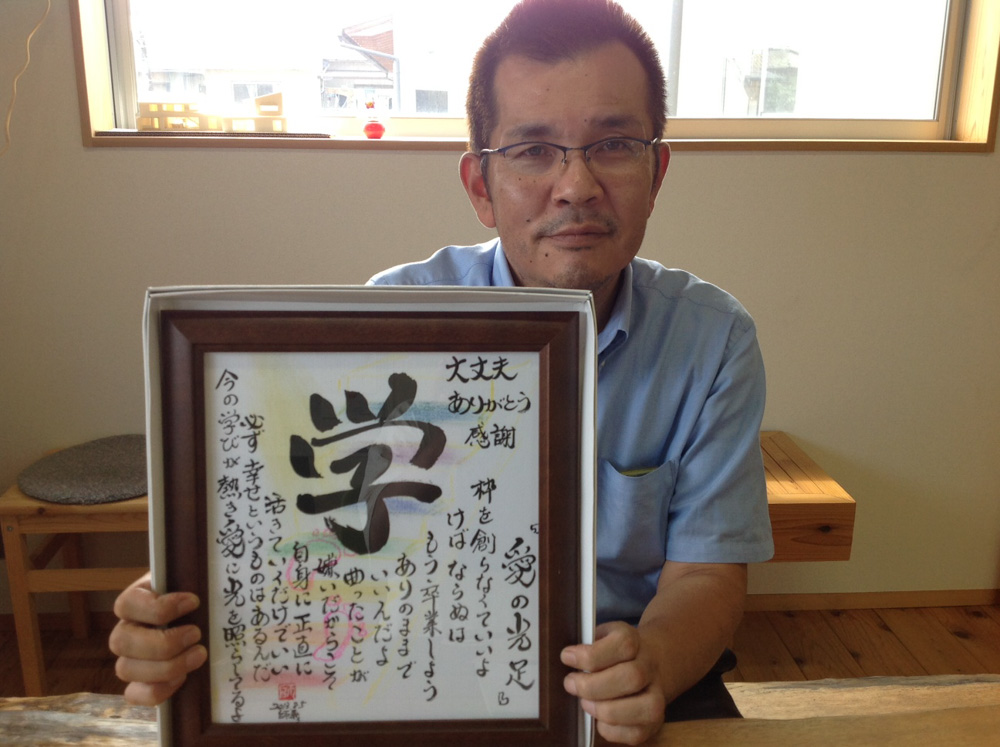 『愛の光足』
大丈夫
ありがとう
感謝
枠を創らなくていいよ
けばならぬは
もう卒業しよう
ありのままで
いいんだよ
曲ったことが
嫌いだからこそ
自身に正直に
活きていくだけでいい
必ず幸せというものはあるんだ
今の学びが熱き愛に光を照らしてるよ
学